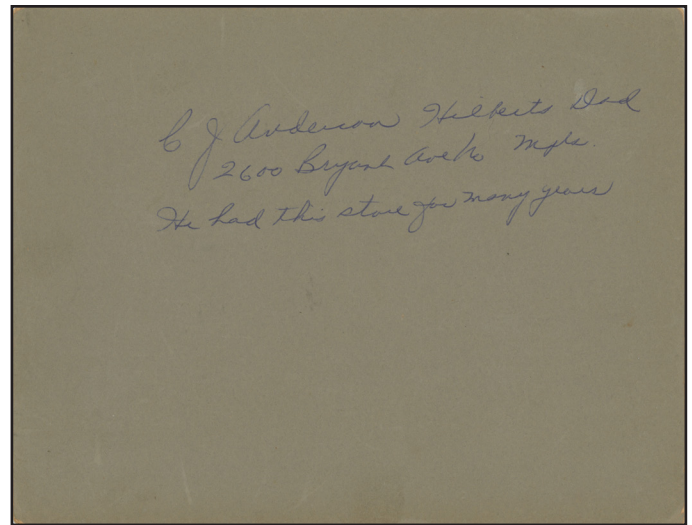 C J Anderson Hilberts Dad
2600 Bryant Ave No Mpls.
He had this store for many years